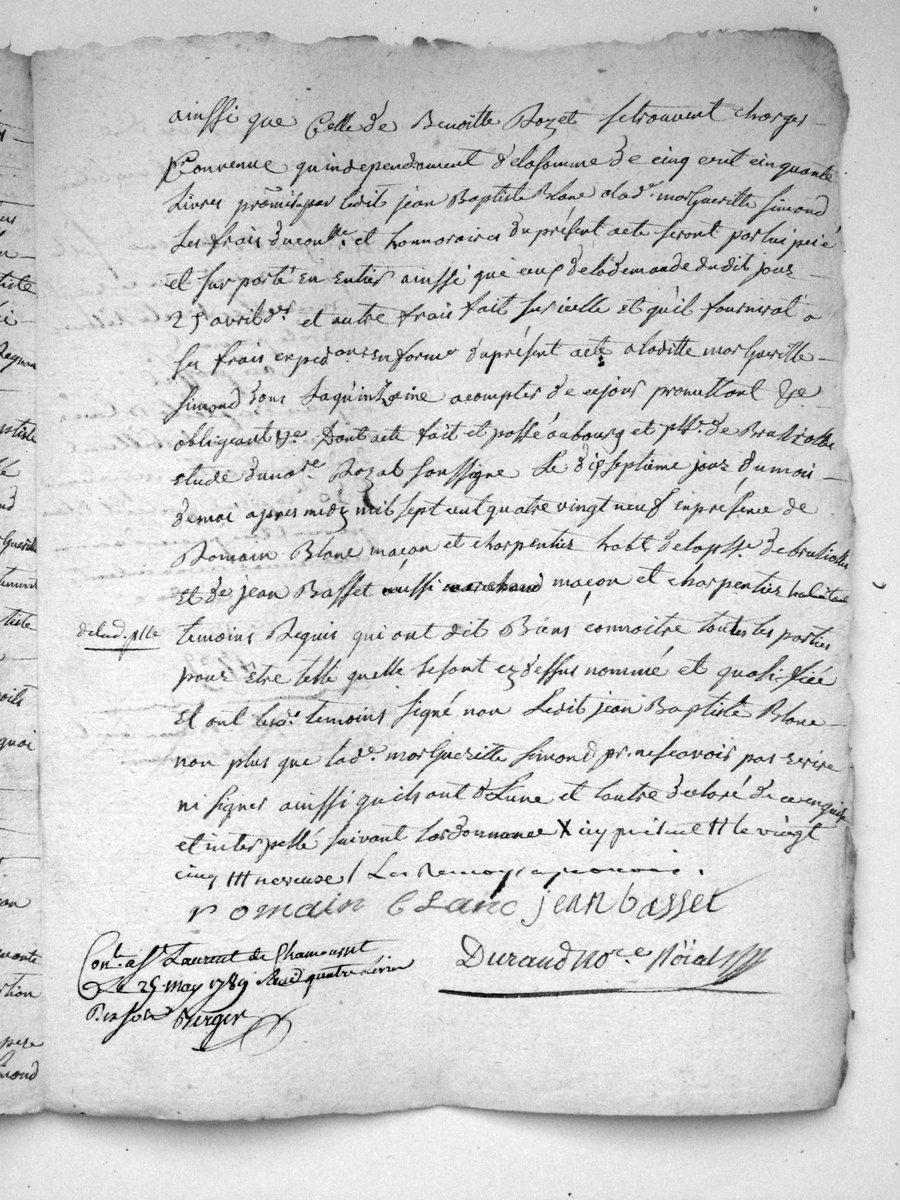 ainssi que Celle de Benoitte Rozet setrouvent charges
Convenue qu'independament delasomme de cinq cent cinquante
Livres promise par ledit jean Baptiste Blanc a lade. marGueritte Simond
Les frais du conlle. et honnoraires du présent acte seront par lui peié
et surporté en entier ainssi que ceux de la demande du dit jour
25 avril der et autre frais fait sur icelle et qu'il fournirat a
ses frais expedons en forme du présent acte a laditte marGueritte
Simond dans la quinzaine a compter de ce jour promettant &c
obligeant &c. Dont acte fait et passé au bourg et psse. de Brussiolle
etude du nore. Royal soussigne Le dixseptieme jour du mois
de mai apres midy mil sept cent quatre vingt neuf en présense de
Romain Blanc maçon et charpentier habt. de la psse. de brussiolles
Et de jean Basset aussi marchand maçon et charpentier habitant
de lad. psse
temoins Requis qui ont dit Biens connoitre toutes les parties
pour être telle quelle se sont cy dessus nommé et qualifiée
Et ont lesds. temoins signé non Ledit jean Baptiste Blanc
non plus que lade. marGueritte Simond pr. ne scavoir pas ecrire
ni signer ainssi quils ont d'Lune et L'autre declaré de ce enquis
et interpellé suivant Lordonnance X le vingt
cinq
romain blanc jean basset
Durand Nore. Röial
Conlé. a St. Laurent de Chamousset
Le 25 may 1789 Reçu quatre Livres
Berger